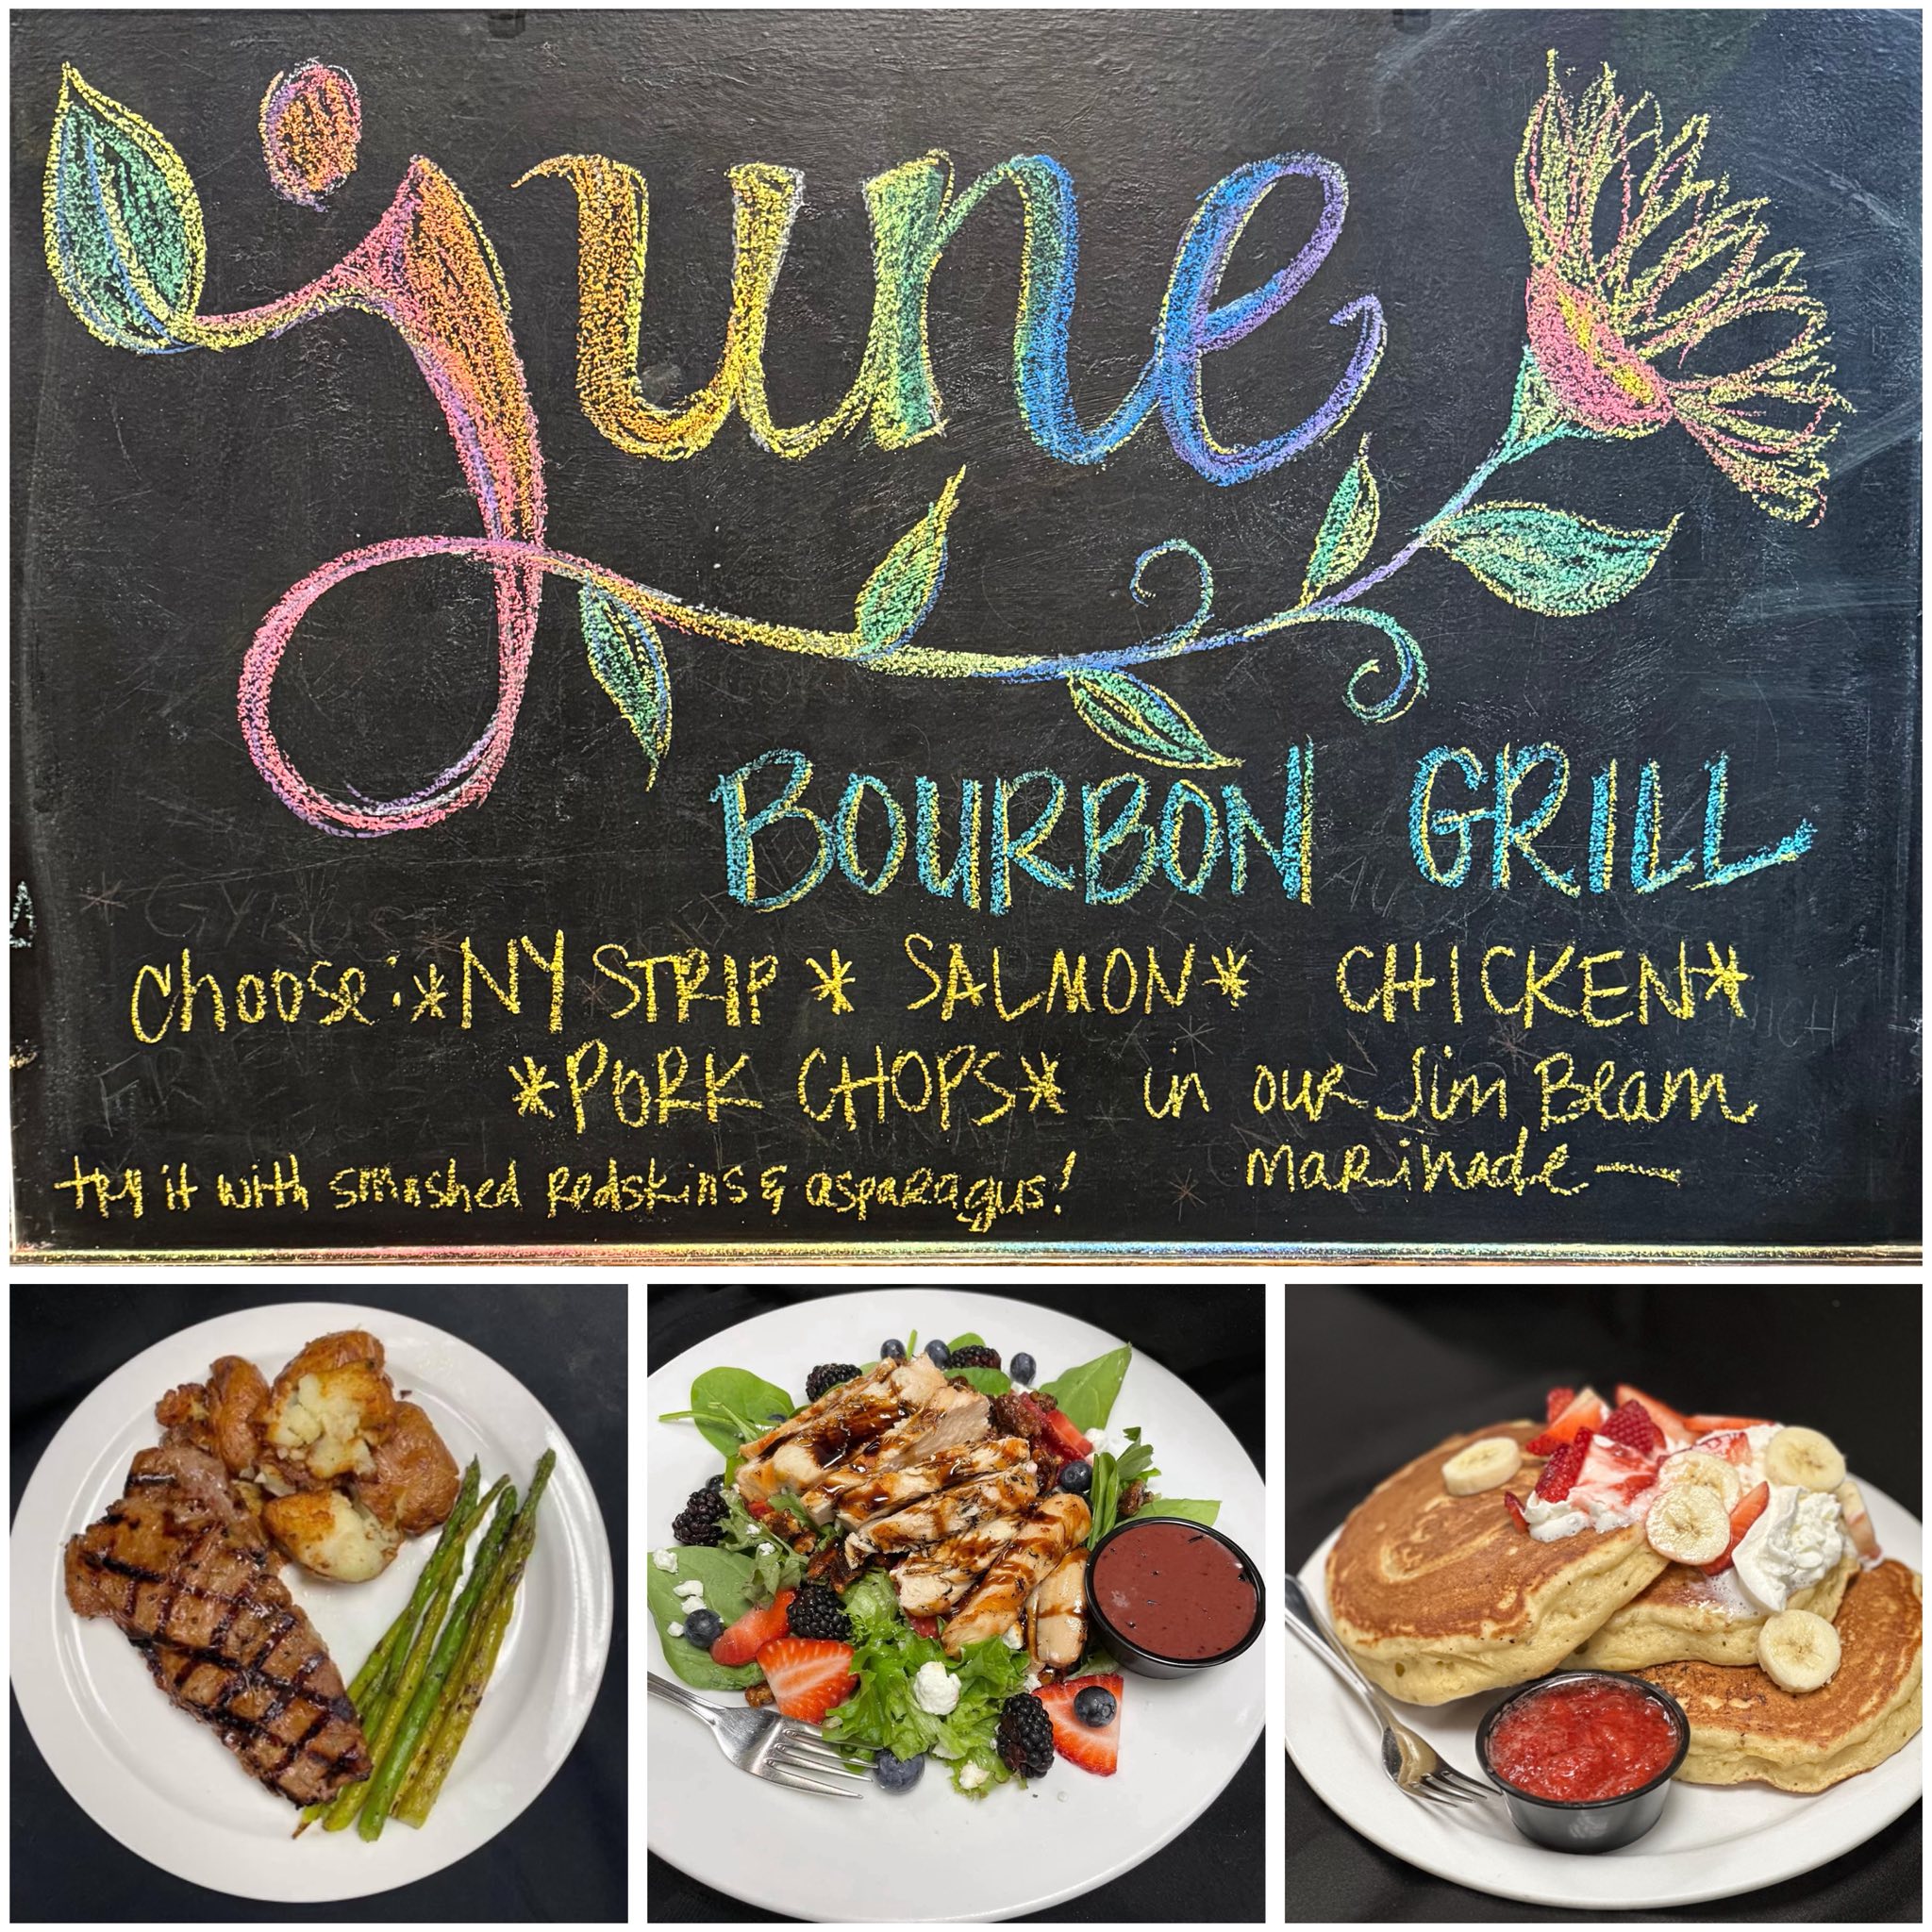 june
BOURBON GRILL
Choose: *NY STRIP * SALMON* CHICKEN*
*PORK CHOPS* in our Jim Beam
marinade —
try it with smashed Redskins & asparagus!